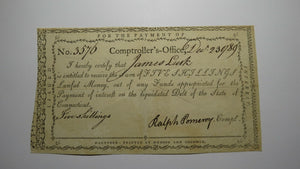 FOR THE PAYMENT OF
No. 3576 Comptroller's-Office, Decr 23 1789
I hereby certify that James Lusk
is entitled to receive the Sum of FIVE SHILLINGS
Lawful Money, out of any Funds appropriated for the
Payment of interest on the liquidated Debt of the State of
Connecticut.
Five shillings
Ralph Pomeroy Compt.
HARTFORD: PRINTED BY HUDSON AND GOODWIN.